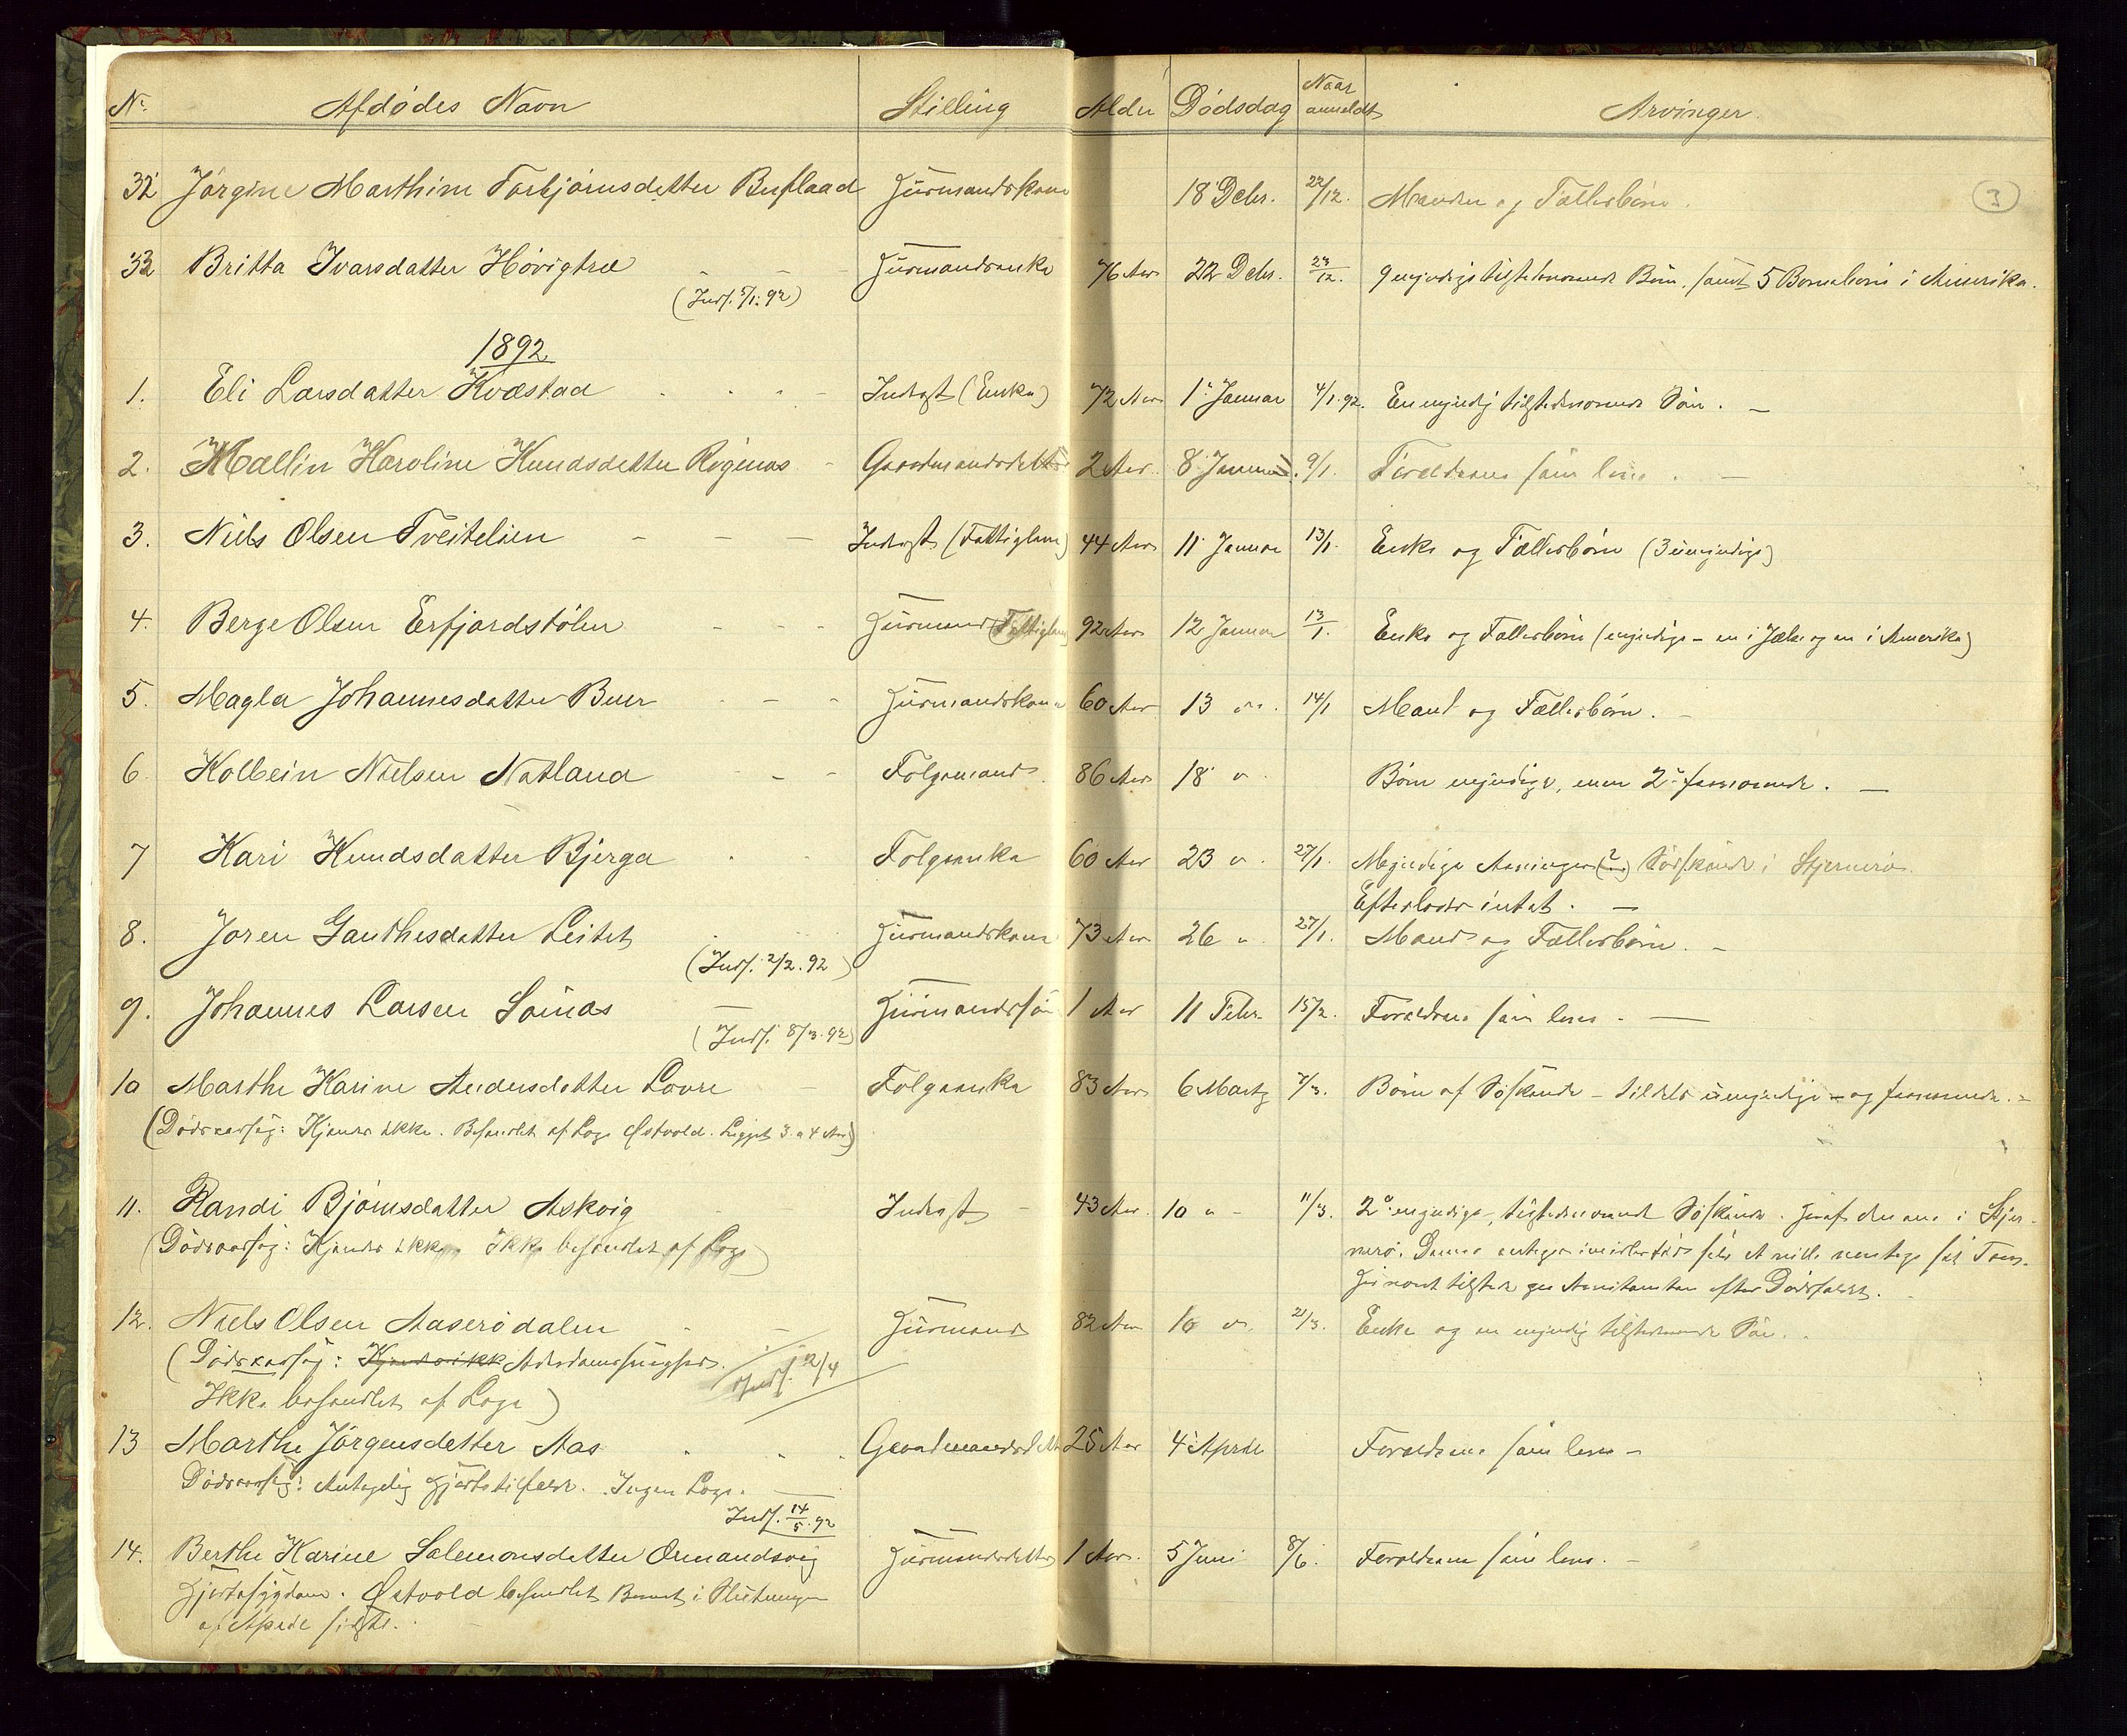 No. Afdødes Navn Stilling Alder Dødsdag Naar anmeldt Arvinger
3
32 Jörgine Marthine Torbjörnsdatter Buflaad Husmandskone 18 Debr. 22/12. Manden og Fællesbörn.
33 Britta Ivarsdatter Hövigtræ Husmandsenke 76 Aar 22 Debr. 23/12. 9 myndige tilstedeværende Börn, samt 5 Börnebörn i Amerika.
(Inds. 5/1. 92)
1892
1. Eli Larsdatter Kvæstad Inderst (Enke) 72 Aar 1 Januar 4/1.92. En myndig tilstedeværende Sön. —
2. Mallin Karoline Knudsdatter Rögenæs Gaardmandsdatter 2 Aar 8 Januar. 9/1. Forældrene som leve. —
3. Niels Olsen Tveitelien Inderst (Fattiglem) 44 Aar 11 Januar 13/1. Enke og Fællesbörn (3 umyndige)
4. Berge Olsen Erfjordstölen Husmand (Fattiglem) 92 Aar 12 Januar 13/1. Enke og Fællesbörn (myndige – en i Jæls og en i Amerika)
5. Magla Johannesdatter Buer Husmandskone 60 Aar 13 " 14/1 Mand og Fællesbörn. –
6. Kolbein Nielsen Natland Folgemand 86 Aar 18 " Börn myndige, men 2 fraværende. —
7 Kari Knudsdatter Bjerga Folgeenke 60 Aar 23 " 27/1. Myndige Arvinger (?) Södskende i Stjernerö.
Efterlader intet. —
8. Joren Gauthesdatter Leitet Husmandskone 73 Aar 26 " 27/1. Mand og Fællesbörn. –
(Inds. 2/2. 92)
9. Johannes Larsen Sönæs — Husmandssön 1 Aar 11 Febr. 15/2. Forældrene som leve. —
(Inds. 8/3. 92)
10 Marthe Karine Andersdatter Lovre Folgeenke 83 Aar 6 Martz 7/3. Börn af Söskende – tildels umyndige – og fraværende. –
(Dödsaarsag: Kjendes ikke. Behandlet af Læge Østvold. Ligget 3 a 4 Aar)
11. Randi Björnsdatter Askvig Inderst 43 Aar. 10 " 11/3. 2 myndige, tilstedeværende Söskende. Heraf den ene i Stjer-
(Dödsaarsag: Kjendes ikke. Ikke behandlet af Læge)
nerö. Denne antager imidlertid ikke at ville
tilstede efter Dödsfaldet.
12. Niels Olsen Aaserödalen Husmand 82 Aar 16 " 21/3. Enke og en myndig tilstedeværende Sön.
(Dödsaarsag: Kjendes ikke Alderdomssvaghed.
Inds. 2/4
Ikke behandlet af Læge)
13 Marthe Jörgensdatter Aas Gaardmandsdatter 25 Aar 4 April Forældrene som leve –
Dödsaarsag: Antagelig Hjertetilfælde. Ingen Læge. —
Inds. 14/5. 92
14. Berthe Karine Salemonsdatter Ormandsvig Husmandsdatter 1 Aar. 5 Juni 8/6. Forældrene som leve. –
Hjertesygdom. Østvold behandlet Barnet i Slutningen
af April sidste.